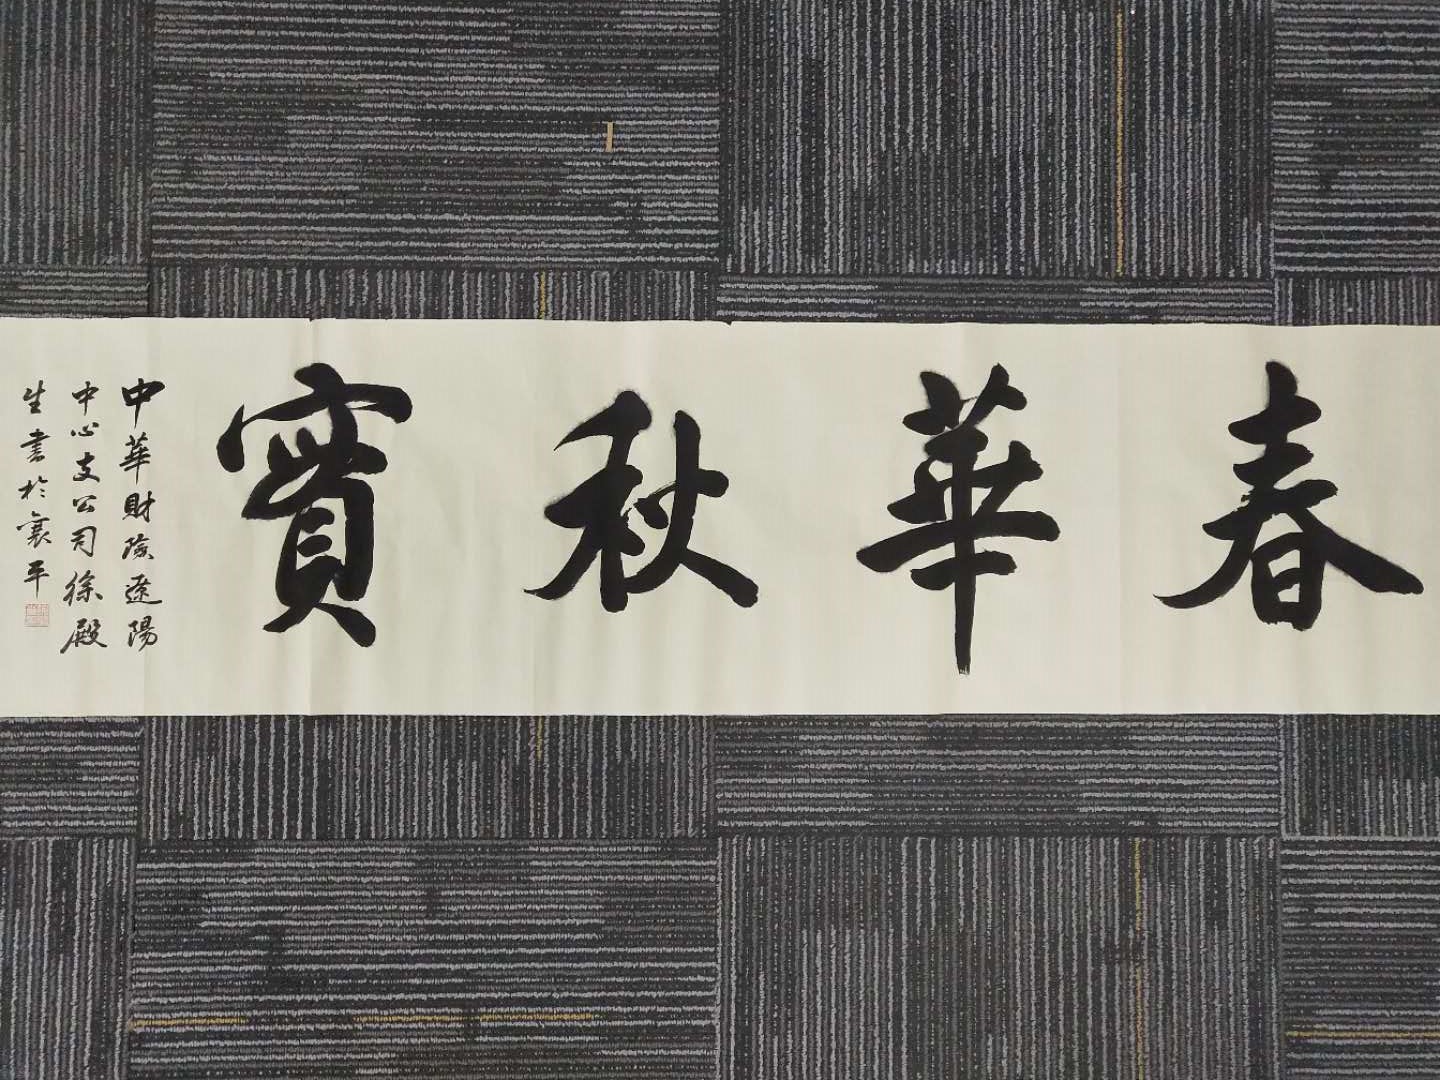 春華秋實
中華財險遼陽
中心支公司徐殿
生書於襄平